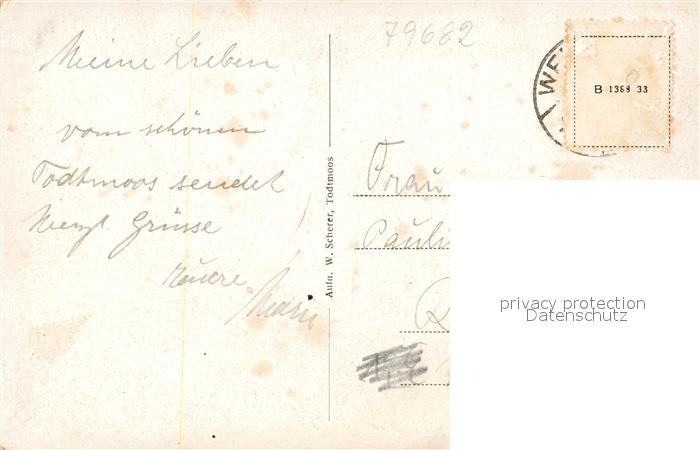 79682
Meine Lieben
vom schönen
Todtmoos sendet
Herzl. Grüsse
Eure
Aufn. W. Scherer, Todtmoos
WE
B 1368 33
Frau
Pauli
privacy protection
Datenschutz